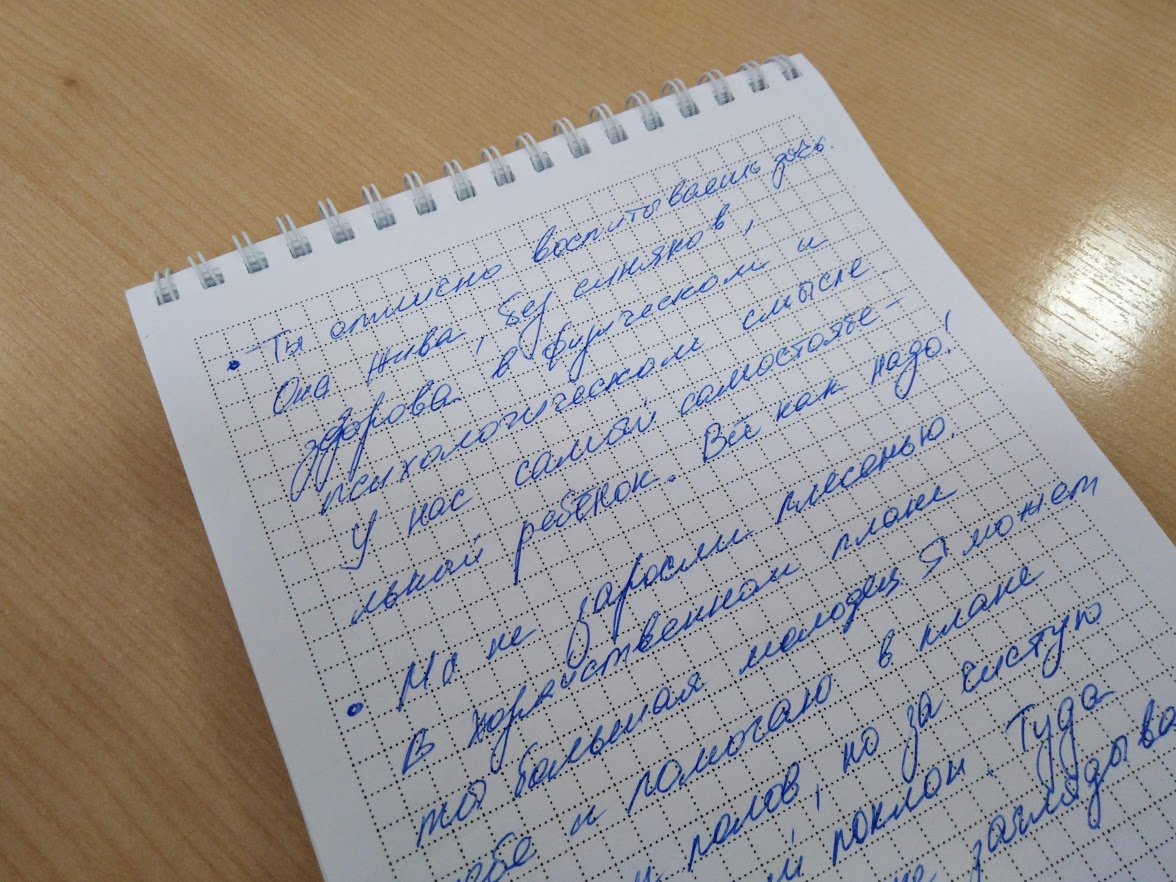 • Ты отлично воспитываешь дочь.
Она жива, без синяков,
здорова в физическом и
психологическом смысле.
У нас самый самостояте-
льный ребёнок. Всё как надо!
• Мы не заросли плесенью.
В хозяйственном плане
ты большая молодец. Я может
и помогаю в плане
полов, но за чистую
поклон. Туда
заглядыва